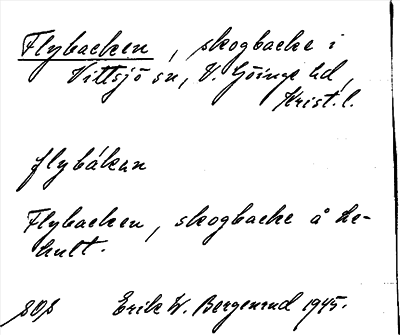 Flybacken, skogbacke i
Vittsjö sn, V. Göinge hd,
Krist. l.
flybákan
Flybacken, skogbacke å De-
hult.
Erik W. Bergenrud 1945.